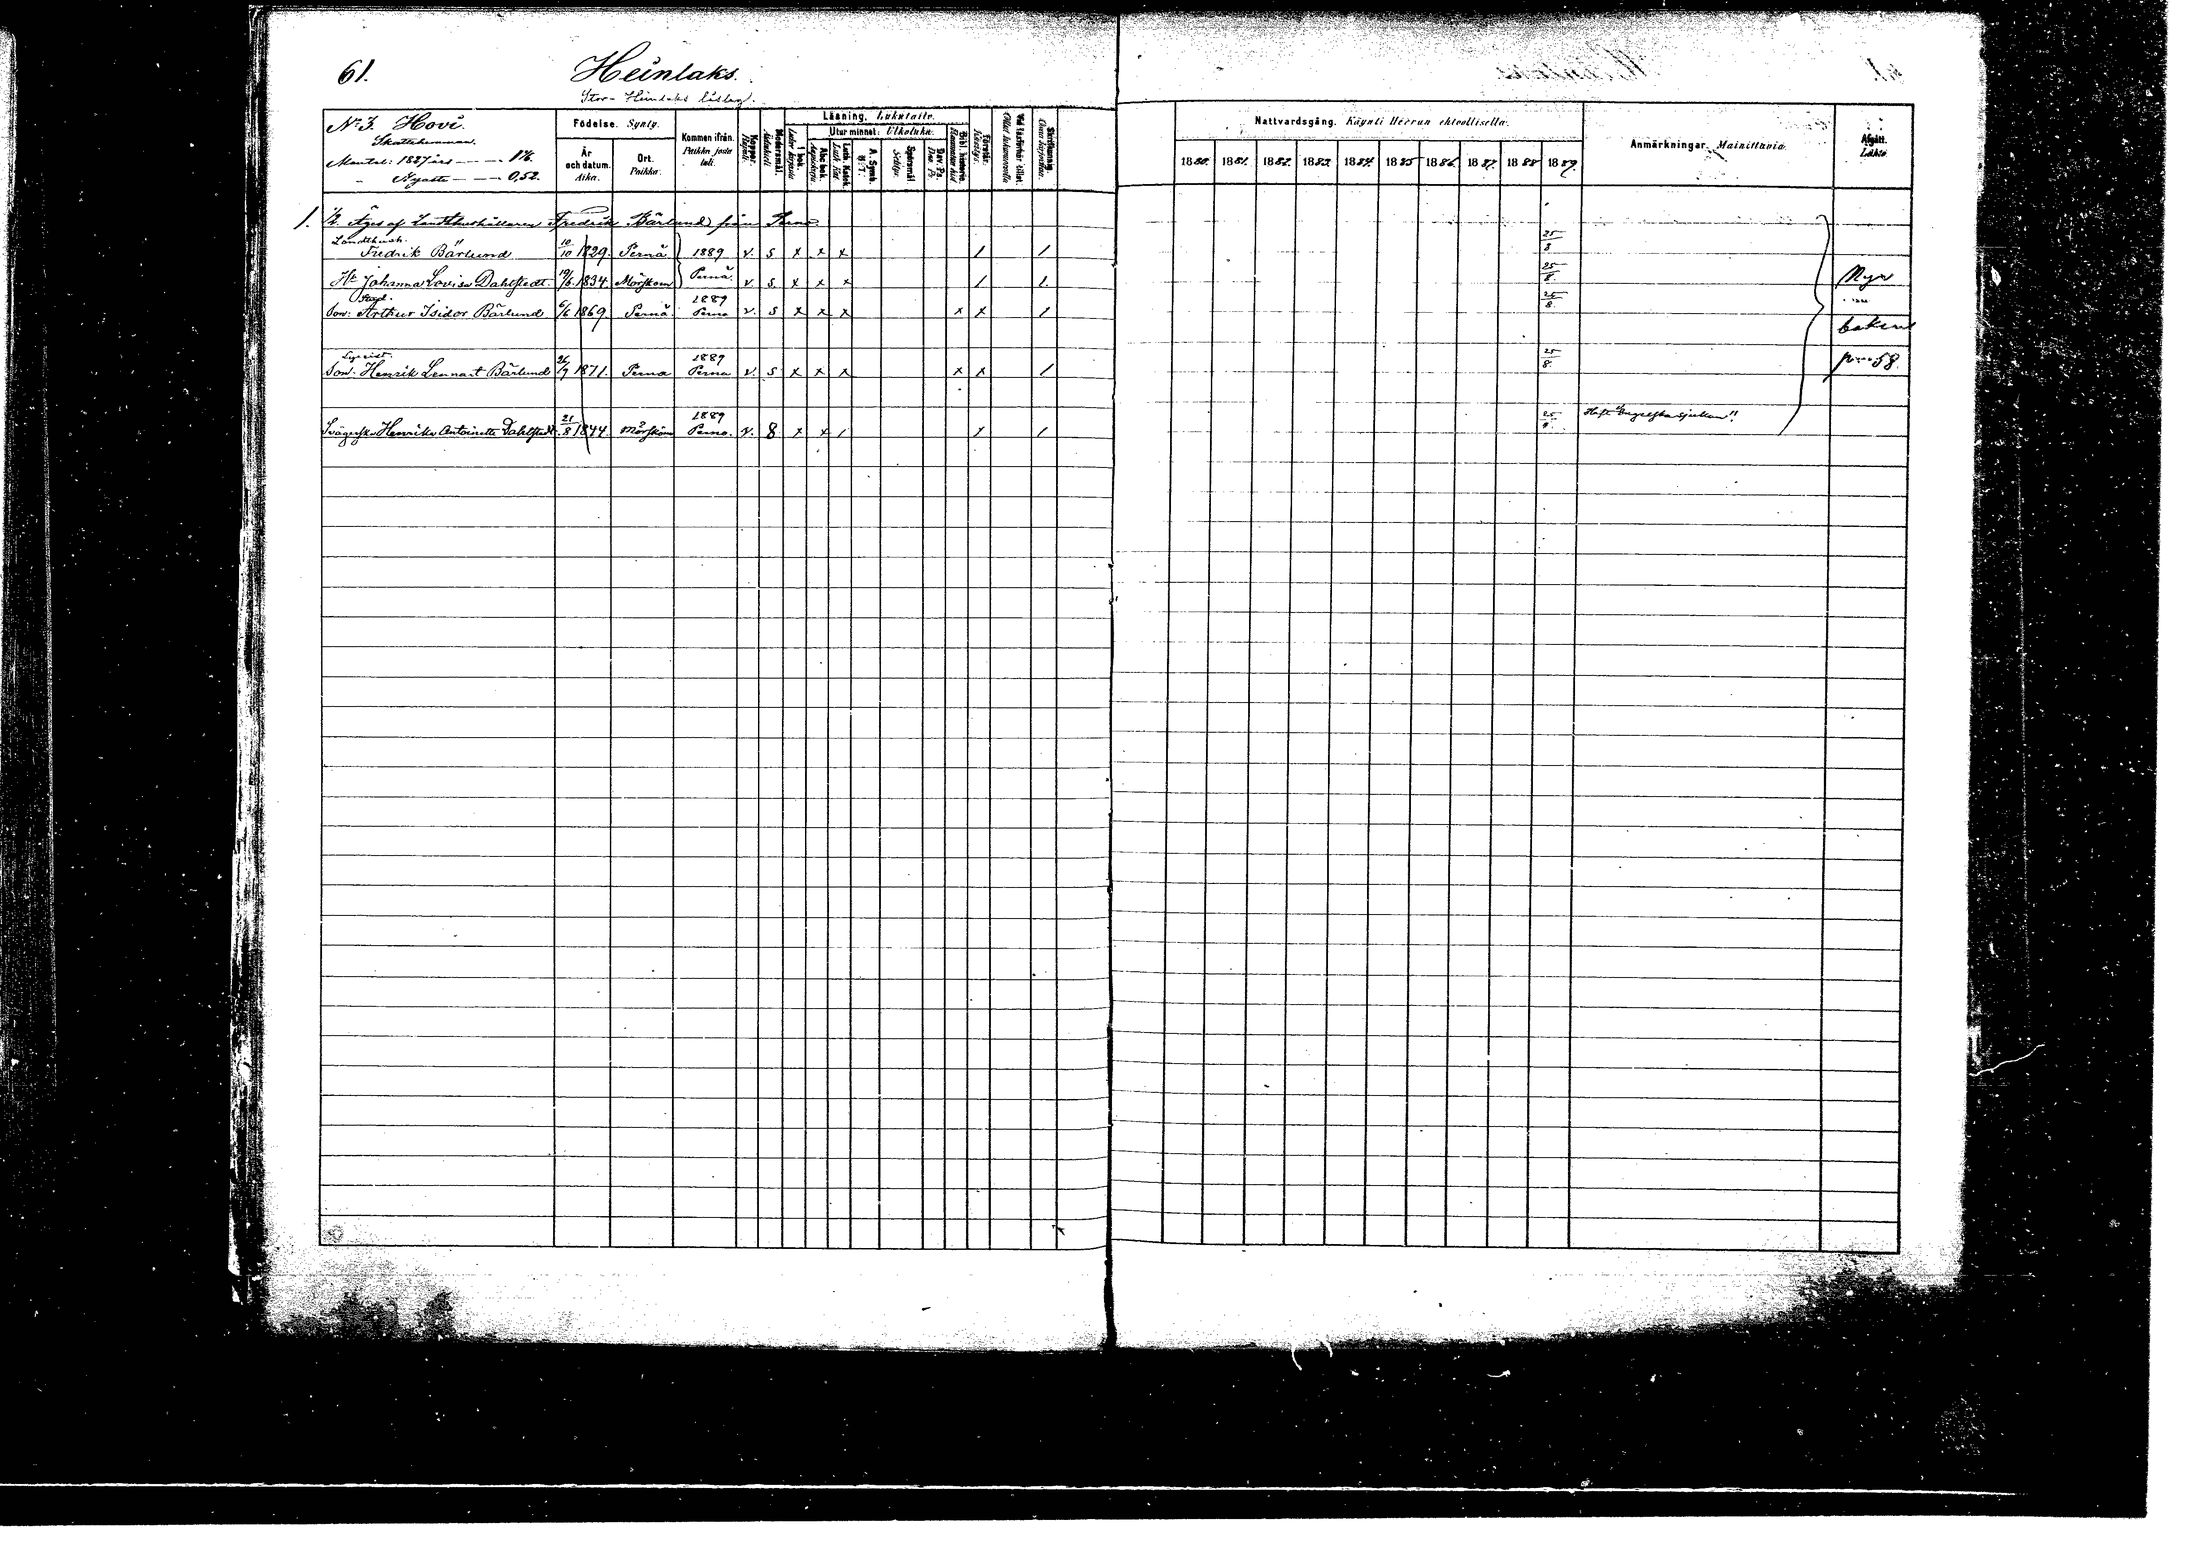 61.
Heinlaks.
Stor-Heinlaks
No 3. Hovi.
Skattehemman.
Mantal: 1887 års
Nyaste 0,52.
Födelse. Synty.
År och datum. Aika.
Ort. Paikka.
Kommen ifrån. Paikka josta tuli.
Koppor. Rokko.
Modersmål. Äidinkieli.
Läsning. Lukutaito.
I bok.
Utur minnet: Ulkoluku.
Abc bok.
Luth. Katek.
A. Symb.
H. T.
Spörsmål. Selitys.
Dav. Ps.
Bibl. historia.
Förstår. Käsitys.
Skriftkunnig.
Nattvardsgång. Käynti Herran ehtoollisella.
1880. 1881. 1882. 1883. 1884. 1885. 1886. 1887. 1888 1889.
Anmärkningar. Mainittavia.
Afgått. Lähtö.
1. 1/2 Äges af Landthushållaren Fredrik Bärlund från Perno
Landthush.
Fredrik Bärlund 10/10 1829. Pernå 1889 v. s x x x / / 25/8
H. Johanna Lovisa Dahlstedt. 19/6 1834. Mörskom Pernå. v. s x x x / 1 25/8 Nya
Son: Arthur Isidor Bärlund 6/6 1869. Pernå. 1889 Perno v. s x x x x x / 25/8
boken
Son: Henrik Lennart Bärlund 26/7 1871. Perna 1889 Perna v. s x x x x x / 25/8 58.
Svägerska Henrika Antoinetta Dahlstedt. 21/8 1844. Mörskom 1889 Perno. v. 8 x x / x / 25/8 Haft "Engelska sjukan"